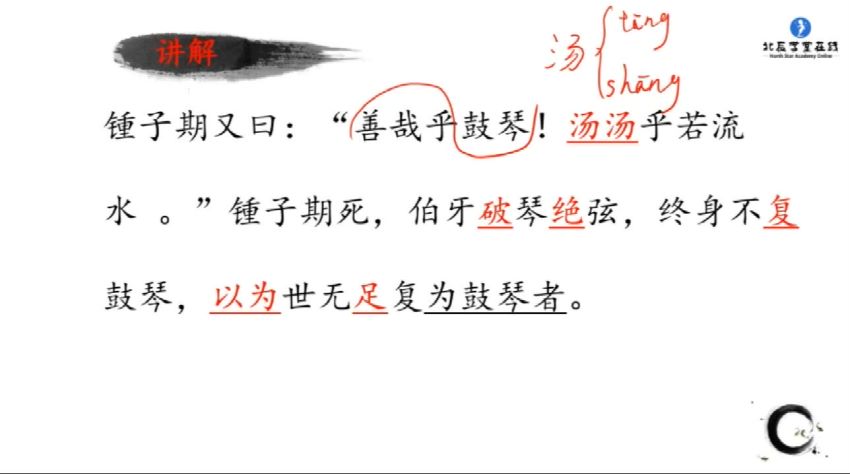 讲解
汤 { tāng
shāng
北辰学堂在线
North Star Academy Online
锺子期又曰：“善哉乎鼓琴！汤汤乎若流
水 。”锺子期死，伯牙破琴绝弦，终身不复
鼓琴，以为世无足复为鼓琴者。